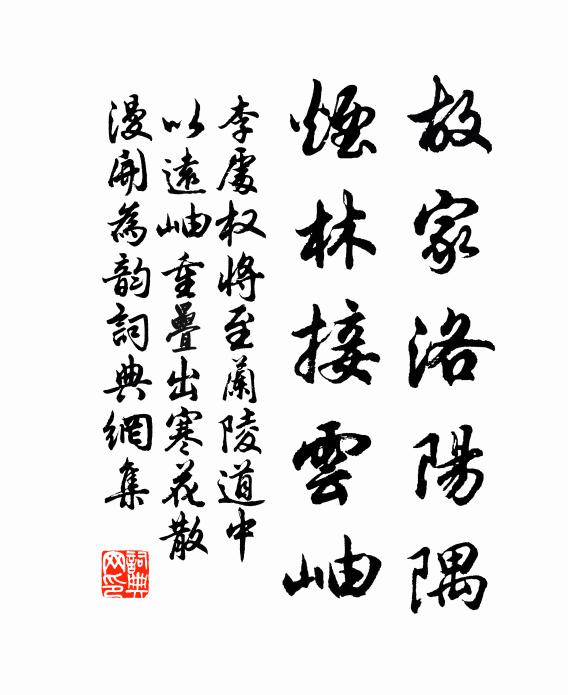 故家洛陽隅
煙林接雲岫
李處权將至蘭陵道中
以遠岫重疊出寒花散
漫開為韵詞典網集
詞典网印